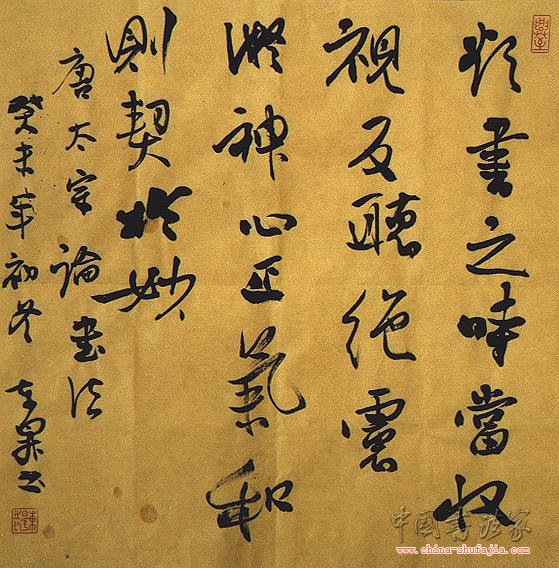 欲書之時當收
視反聽絕慮
凝神心正氣和
則契於妙
唐太宗論書法
癸未年初冬
中國書法家
www.china-shufajia.com